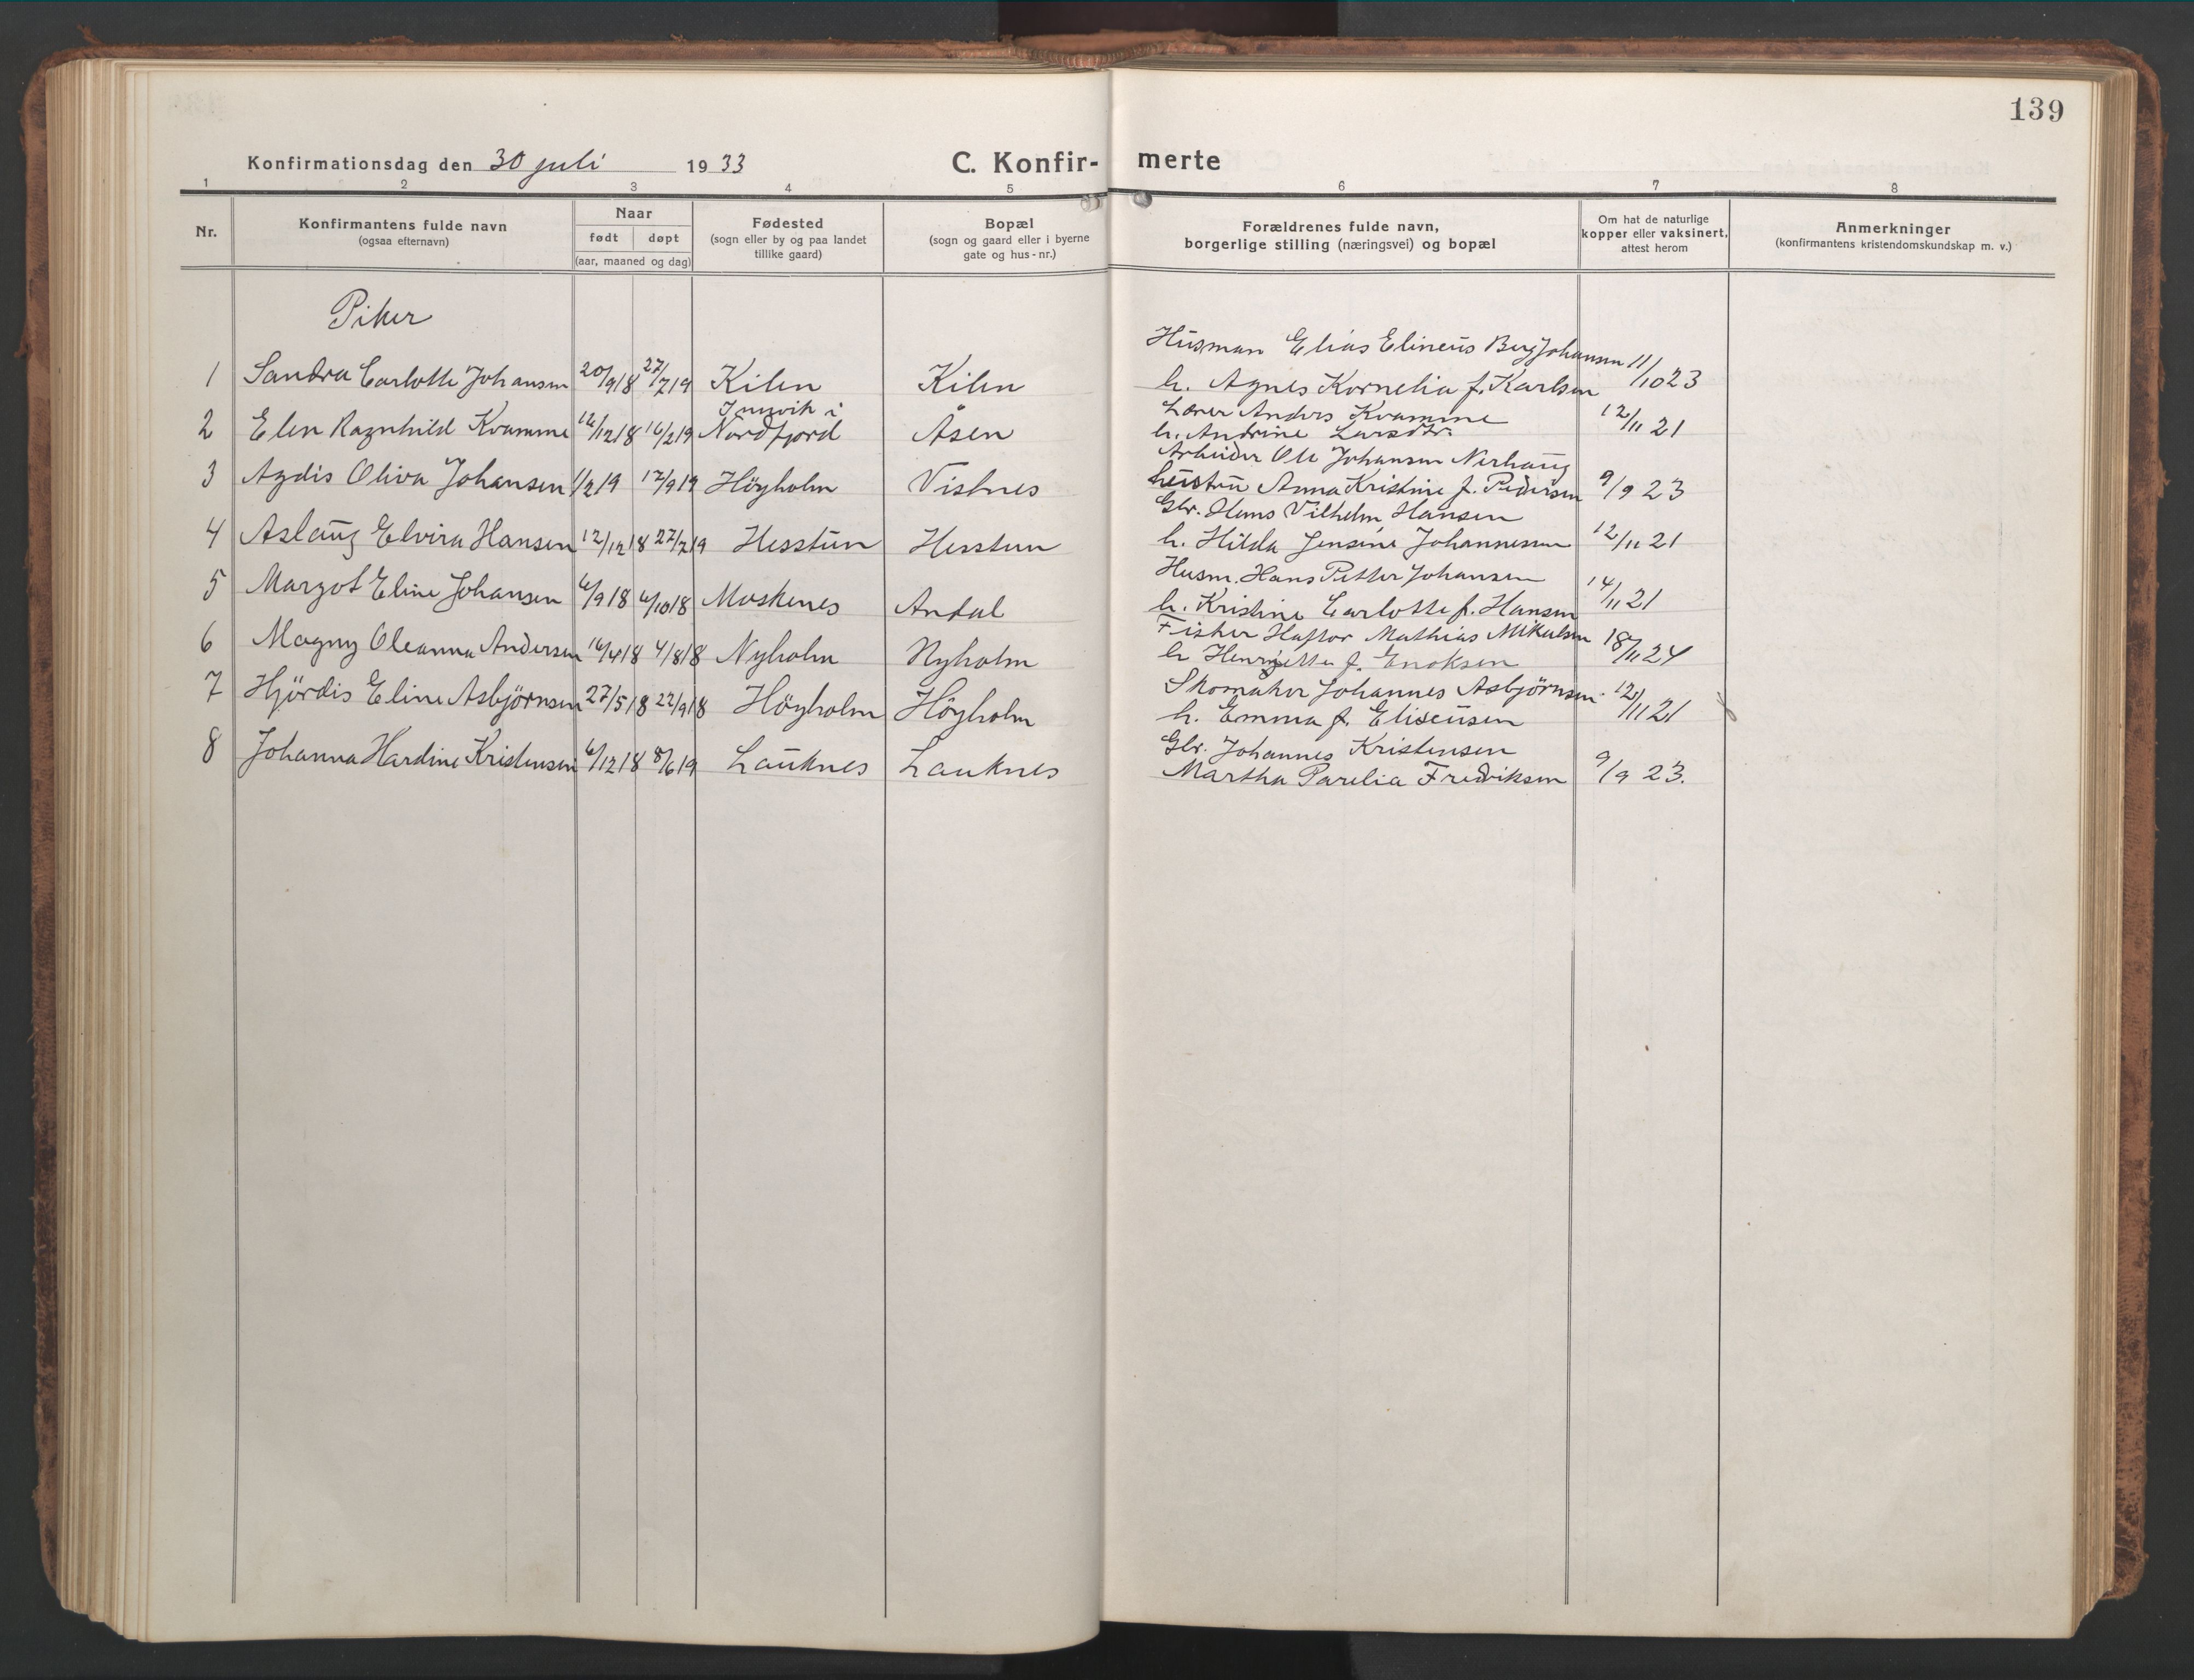 139
Konfirmationsdag den 30 juli 1933
C. Konfir- merte
1 2 3 4 5 6 7 8
Nr.
Konfirmantens fulde navn
(ogsaa efternavn)
Naar
født døpt
(aar, maaned og dag)
Fødested
(sogn eller by og paa landet
tillike gaard)
Bopæl
(sogn og gaard eller i byerne
gate og hus-nr.)
Forældrenes fulde navn,
borgerlige stilling (næringsvei) og bopæl
Om hat de naturlige
kopper eller vaksinert,
attest herom
Anmerkninger
(konfirmantens kristendomskundskap m. v.)
Piker
Husman Elias Elineus Berg Johansen
1 Sandra Carlotte Johansen 20/9 18 27/7 19 Kilen Kilen h. Agnes Kornelia f. Karlsen 11/10 23
Innvik i Lærer Anders Kvamme
2 Elen Ragnhild Kvamme 12/18 16/2 19 Nordfjord Åsen h. Andrine Larsdtr. 12/11 21
Arbeider Ole Johansen Nerhaug
3 Agdis Oliva Johansen 1/2 19 17/9 19 Höyholm Vistnes hustru Anna Kristine f. Pedersen 9/9 23
Gbr. Hans Vilhelm Hansen
4 Aslaug Elvira Hansen 12/12 18 27/7 19 Hesstun Hesstun h. Hilda Jensine Johannesen 12/11 21
Husm. Hans Petter Johansen
5 Margot Eline Johansen 6/9 18 6/10 18 Moskenes Andal h. Kristine Carlotte f. Hansen 14/11 21
Fisker Haftor Mathias Mikalsen
6 Magny Oleanna Andersen 16/4 18 4/8 18 Nyholm Nyholm h. Henrijette f. Enoksen 18/11 24
Skomaker Johannes Asbjörnsen
7 Hjördis Eline Asbjörnsen 27/5 18 22/9 18 Höyholm Höyholm h. Emma f. Eliseusen 12/11 21
Gbr. Johannes Kristensen
8 Johanna Hardine Kristensen 6/12 18 8/6 19 Lauknes Lauknes Martha Parelia Fredriksen 9/9 23.